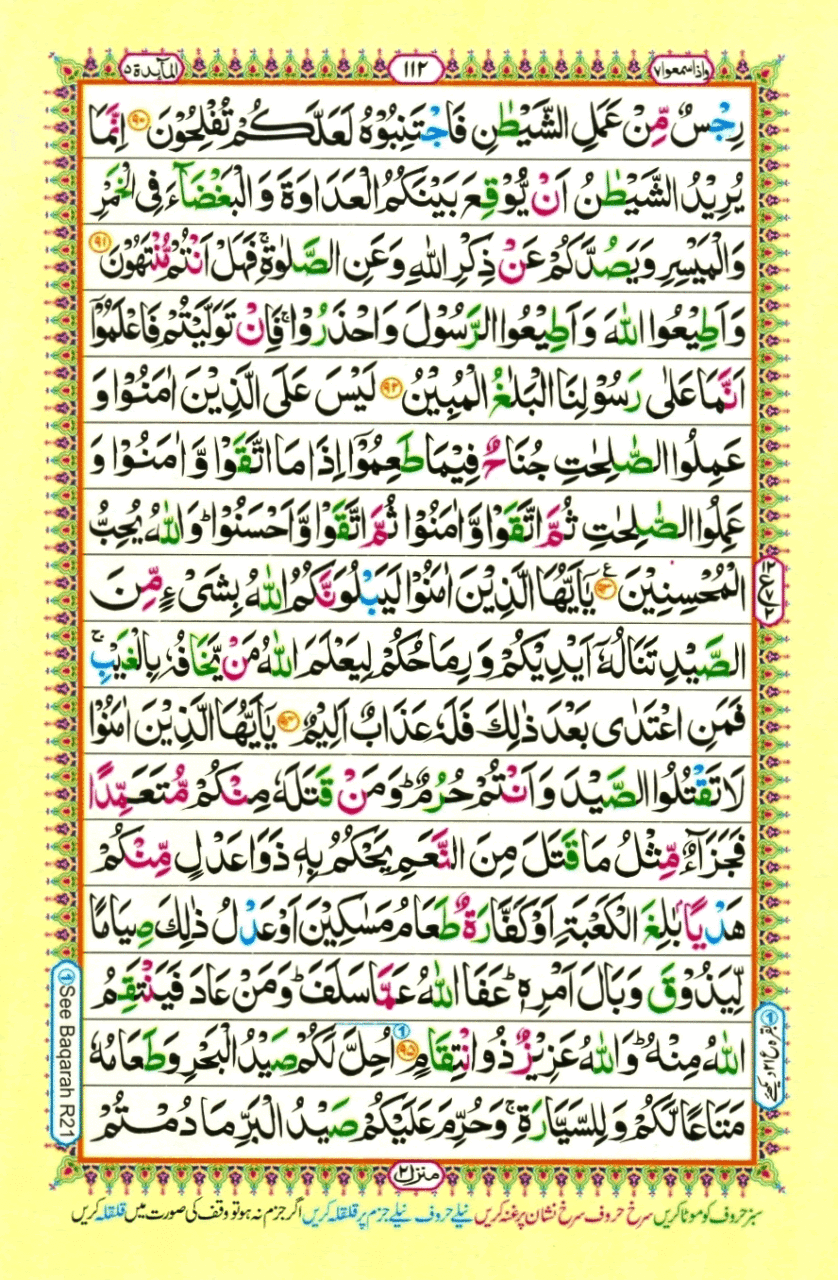 واذا سمعوا ۷
۱۱۲
المآىِٕدة ۵
رِجْسٌ مِّنْ عَمَلِ الشَّیْطٰنِ فَاجْتَنِبُوْهُ لَعَلَّكُمْ تُفْلِحُوْنَ ۹۰ اِنَّمَا
یُرِیْدُ الشَّیْطٰنُ اَنْ یُّوْقِعَ بَیْنَكُمُ الْعَدَاوَةَ وَ الْبَغْضَآءَ فِی الْخَمْرِ
وَالْمَیْسِرِ وَیَصُدَّكُمْ عَنْ ذِكْرِ اللّٰهِ وَعَنِ الصَّلٰوةِ ۚ فَهَلْ اَنْتُمْ مُّنْتَهُوْنَ ۹۱
وَاَطِیْعُوا اللّٰهَ وَاَطِیْعُوا الرَّسُوْلَ وَاحْذَرُوْا ۚ فَاِنْ تَوَلَّیْتُمْ فَاعْلَمُوْۤا
اَنَّمَا عَلٰی رَسُوْلِنَا الْبَلٰغُ الْمُبِیْنُ ۹۲ لَیْسَ عَلَی الَّذِیْنَ اٰمَنُوْا وَ
عَمِلُوا الصّٰلِحٰتِ جُنَاحٌ فِیْمَا طَعِمُوْۤا اِذَا مَا اتَّقَوْا وَّاٰمَنُوْا وَ
عَمِلُوا الصّٰلِحٰتِ ثُمَّ اتَّقَوْا وَّاٰمَنُوْا ثُمَّ اتَّقَوْا وَّاَحْسَنُوْا ؕ وَاللّٰهُ یُحِبُّ
الْمُحْسِنِیْنَ ۹۳ یٰۤاَیُّهَا الَّذِیْنَ اٰمَنُوْا لَیَبْلُوَنَّكُمُ اللّٰهُ بِشَیْءٍ مِّنَ
الصَّیْدِ تَنَالُهٗۤ اَیْدِیْكُمْ وَرِمَاحُكُمْ لِیَعْلَمَ اللّٰهُ مَنْ یَّخَافُهٗ بِالْغَیْبِ ۚ
فَمَنِ اعْتَدٰی بَعْدَ ذٰلِكَ فَلَهٗ عَذَابٌ اَلِیْمٌ ۹۴ یٰۤاَیُّهَا الَّذِیْنَ اٰمَنُوْا
لَا تَقْتُلُوا الصَّیْدَ وَاَنْتُمْ حُرُمٌ ؕ وَمَنْ قَتَلَهٗ مِنْكُمْ مُّتَعَمِّدًا
فَجَزَآءٌ مِّثْلُ مَا قَتَلَ مِنَ النَّعَمِ یَحْكُمُ بِهٖ ذَوَا عَدْلٍ مِّنْكُمْ
هَدْیًۢا بٰلِغَ الْكَعْبَةِ اَوْ كَفَّارَةٌ طَعَامُ مَسٰكِیْنَ اَوْ عَدْلُ ذٰلِكَ صِیَامًا
لِّیَذُوْقَ وَبَالَ اَمْرِهٖ ؕ عَفَا اللّٰهُ عَمَّا سَلَفَ ؕ وَمَنْ عَادَ فَیَنْتَقِمُ
اللّٰهُ مِنْهُ ؕ وَاللّٰهُ عَزِیْزٌ ذُو انْتِقَامٍ ۹۵ اُحِلَّ لَكُمْ صَیْدُ الْبَحْرِ وَطَعَامُهٗ
مَتَاعًا لَّكُمْ وَلِلسَّیَّارَةِ ۚ وَحُرِّمَ عَلَیْكُمْ صَیْدُ الْبَرِّ مَا دُمْتُمْ
① See Baqarah R21
منزل ۲
سبز حروف کو موٹا کریں سرخ حروف سرخ نشان پر غنہ کریں نیلے حروف نیلے جزم پر قلقلہ کریں اگر جزم نہ ہو تو وقف کی صورت میں قلقلہ کریں